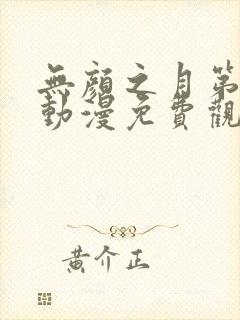 無顏之月第
動漫免費觀
黃介正